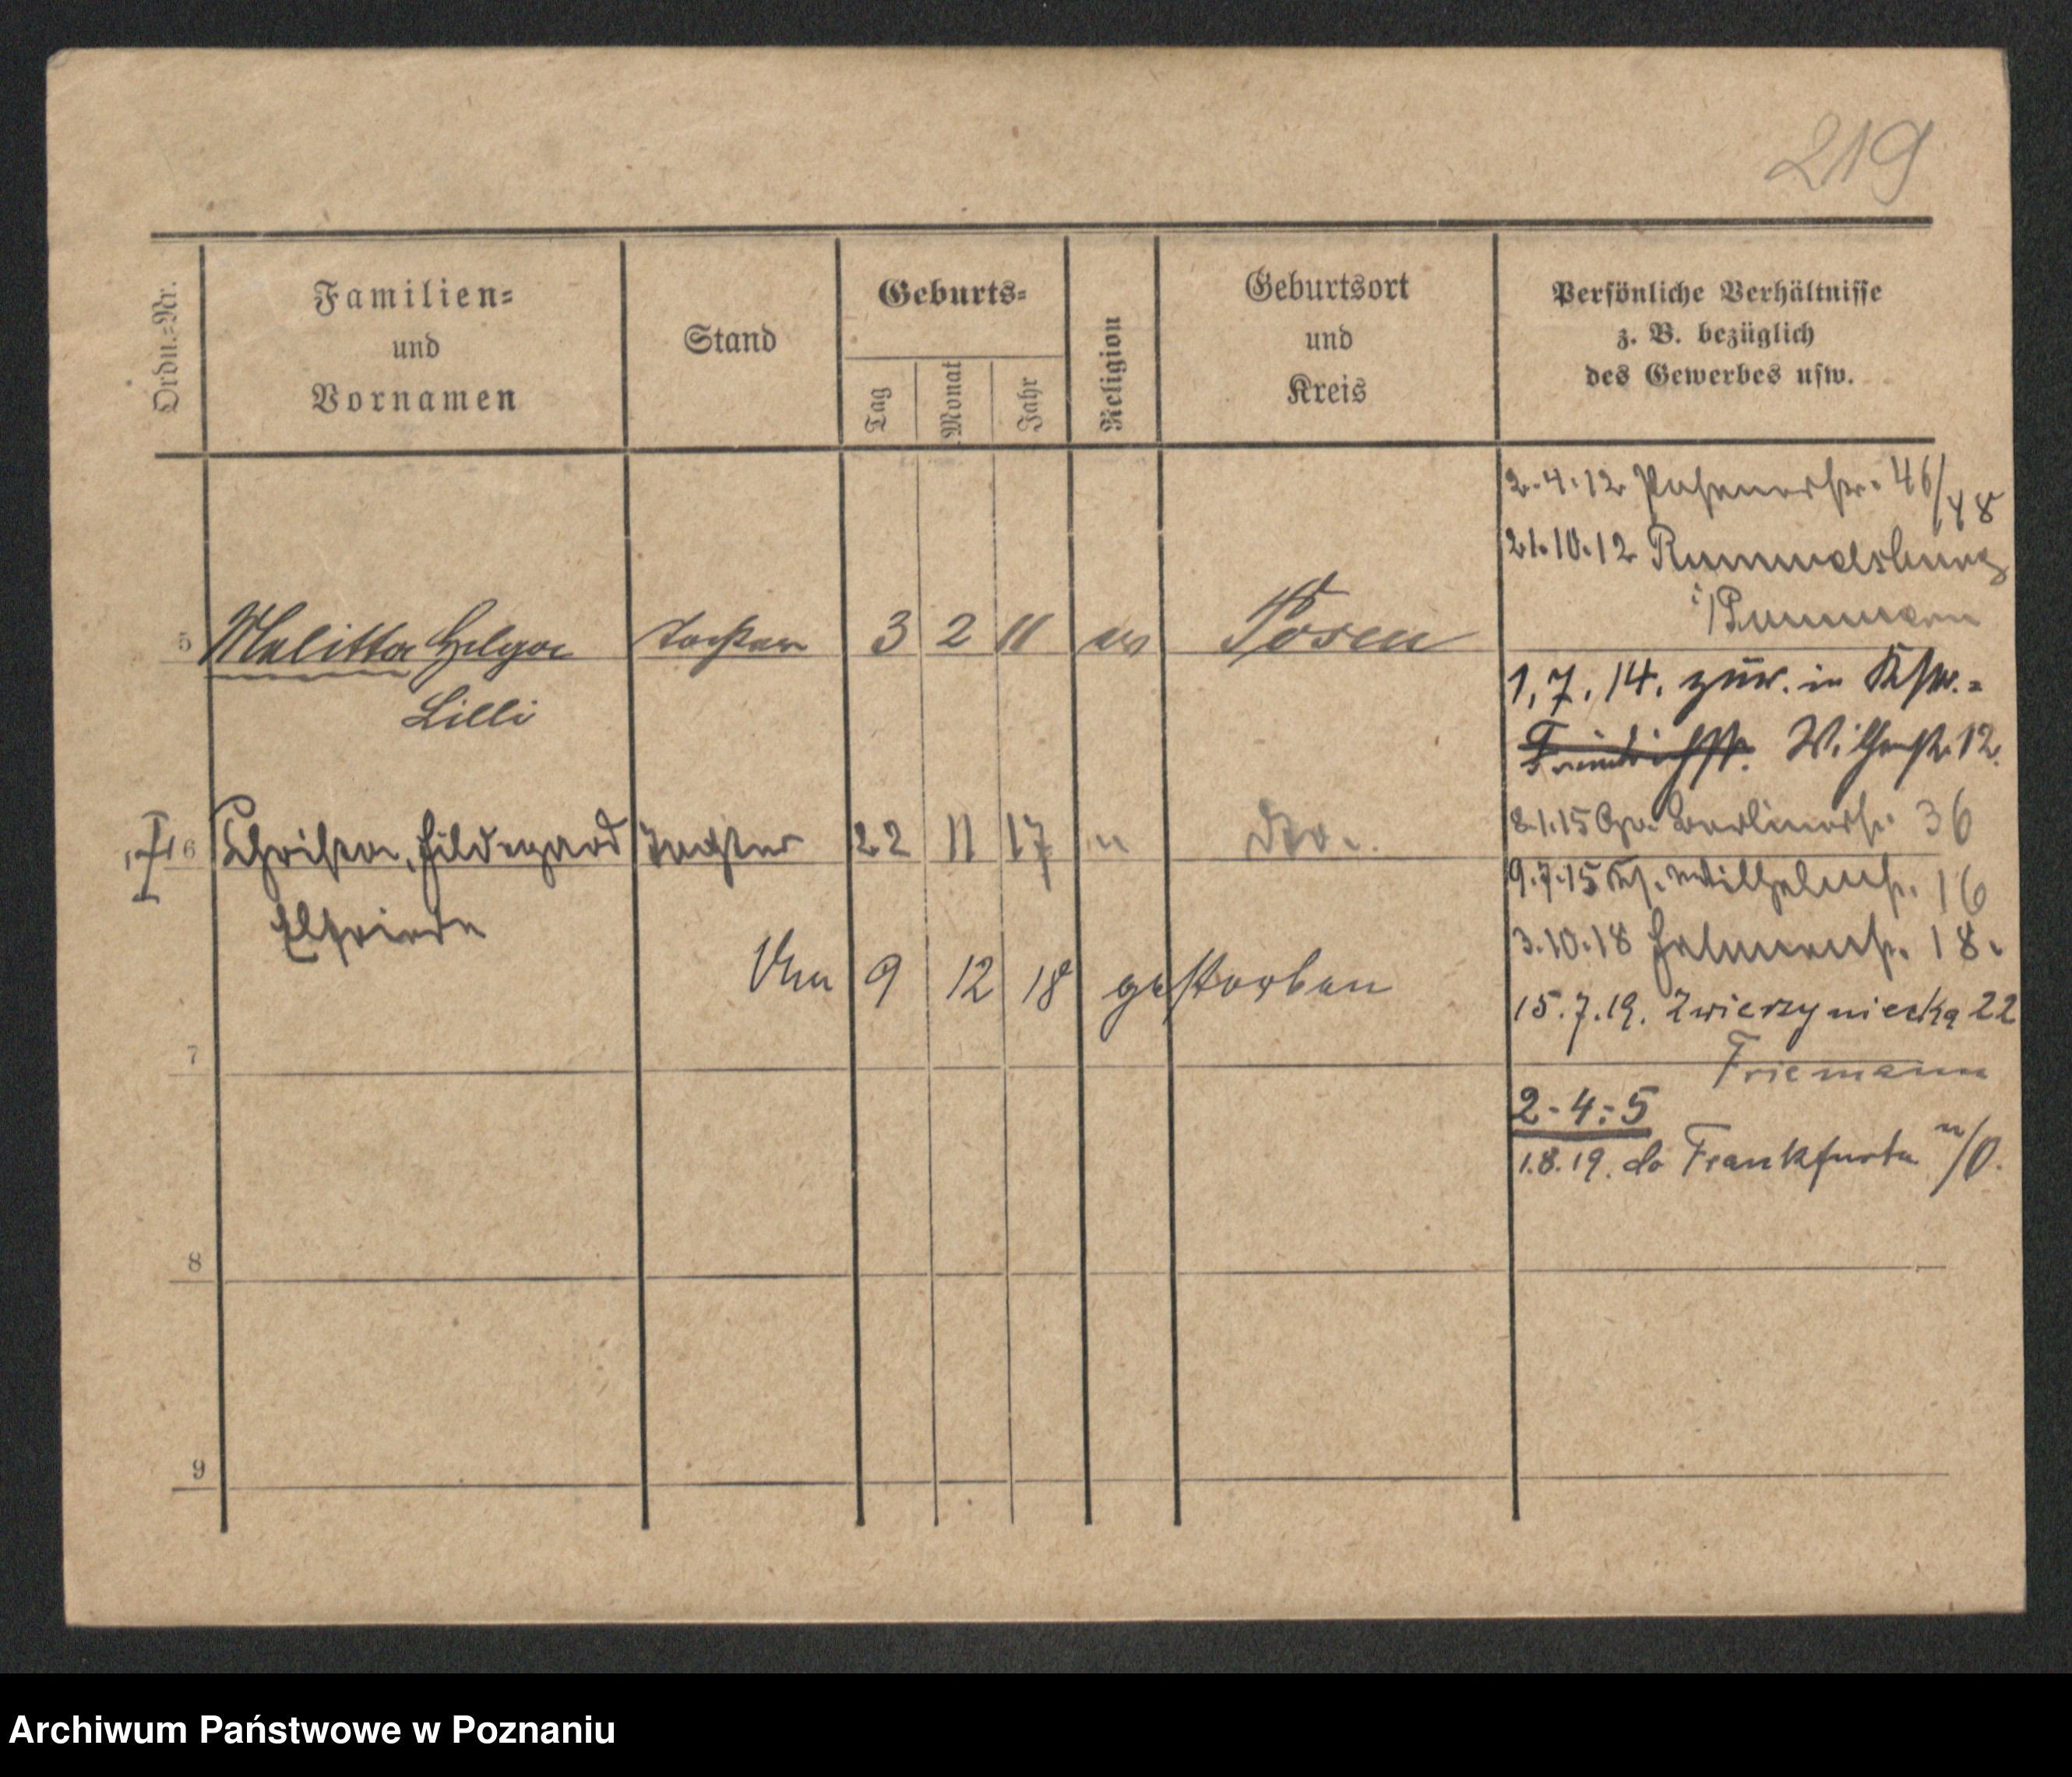 219
Ordn.=Nr.
Familien=
und
Vornamen
Stand
Geburts=
Tag
Monat
Jahr
Religion
Geburtsort
und
Kreis
Persönliche Verhältnisse
z. B. bezüglich
des Gewerbes usw.
2.4.12 Posenerstr. 46/48
21.10.12 Rummelsburg
i/Pommern
5 Melitta Helga Tochter 3 2 11 ev Posen
Lilli
1.7.14. zur. in
Friedrichstr. Wilhemstr. 12.
8.1.15 Berlinerstr. 36
6 Christa, Hildegard Tochter 22 11 17 " dto.
Elfriede
9.7.15 Wilhelmstr. 16
3.10.18 18.
9 12 18 gestorben
15.7.19. Zwierzyniecka 22
Friemann
7
2-4-5
1.8.19. do Frankfurtu n/O.
8
9
Archiwum Państwowe w Poznaniu